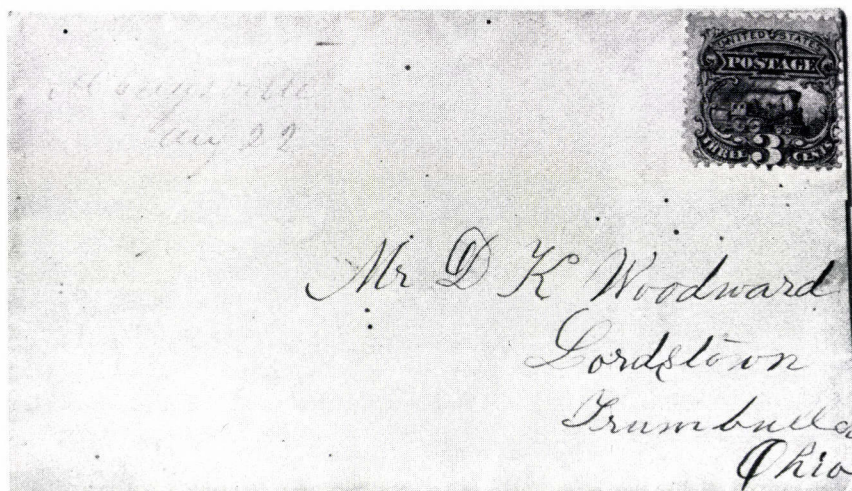 UNITED STATES
POSTAGE
THREE 3 CENTS
22
Mr D K Woodward
Lordstown
Trumbull
Ohio